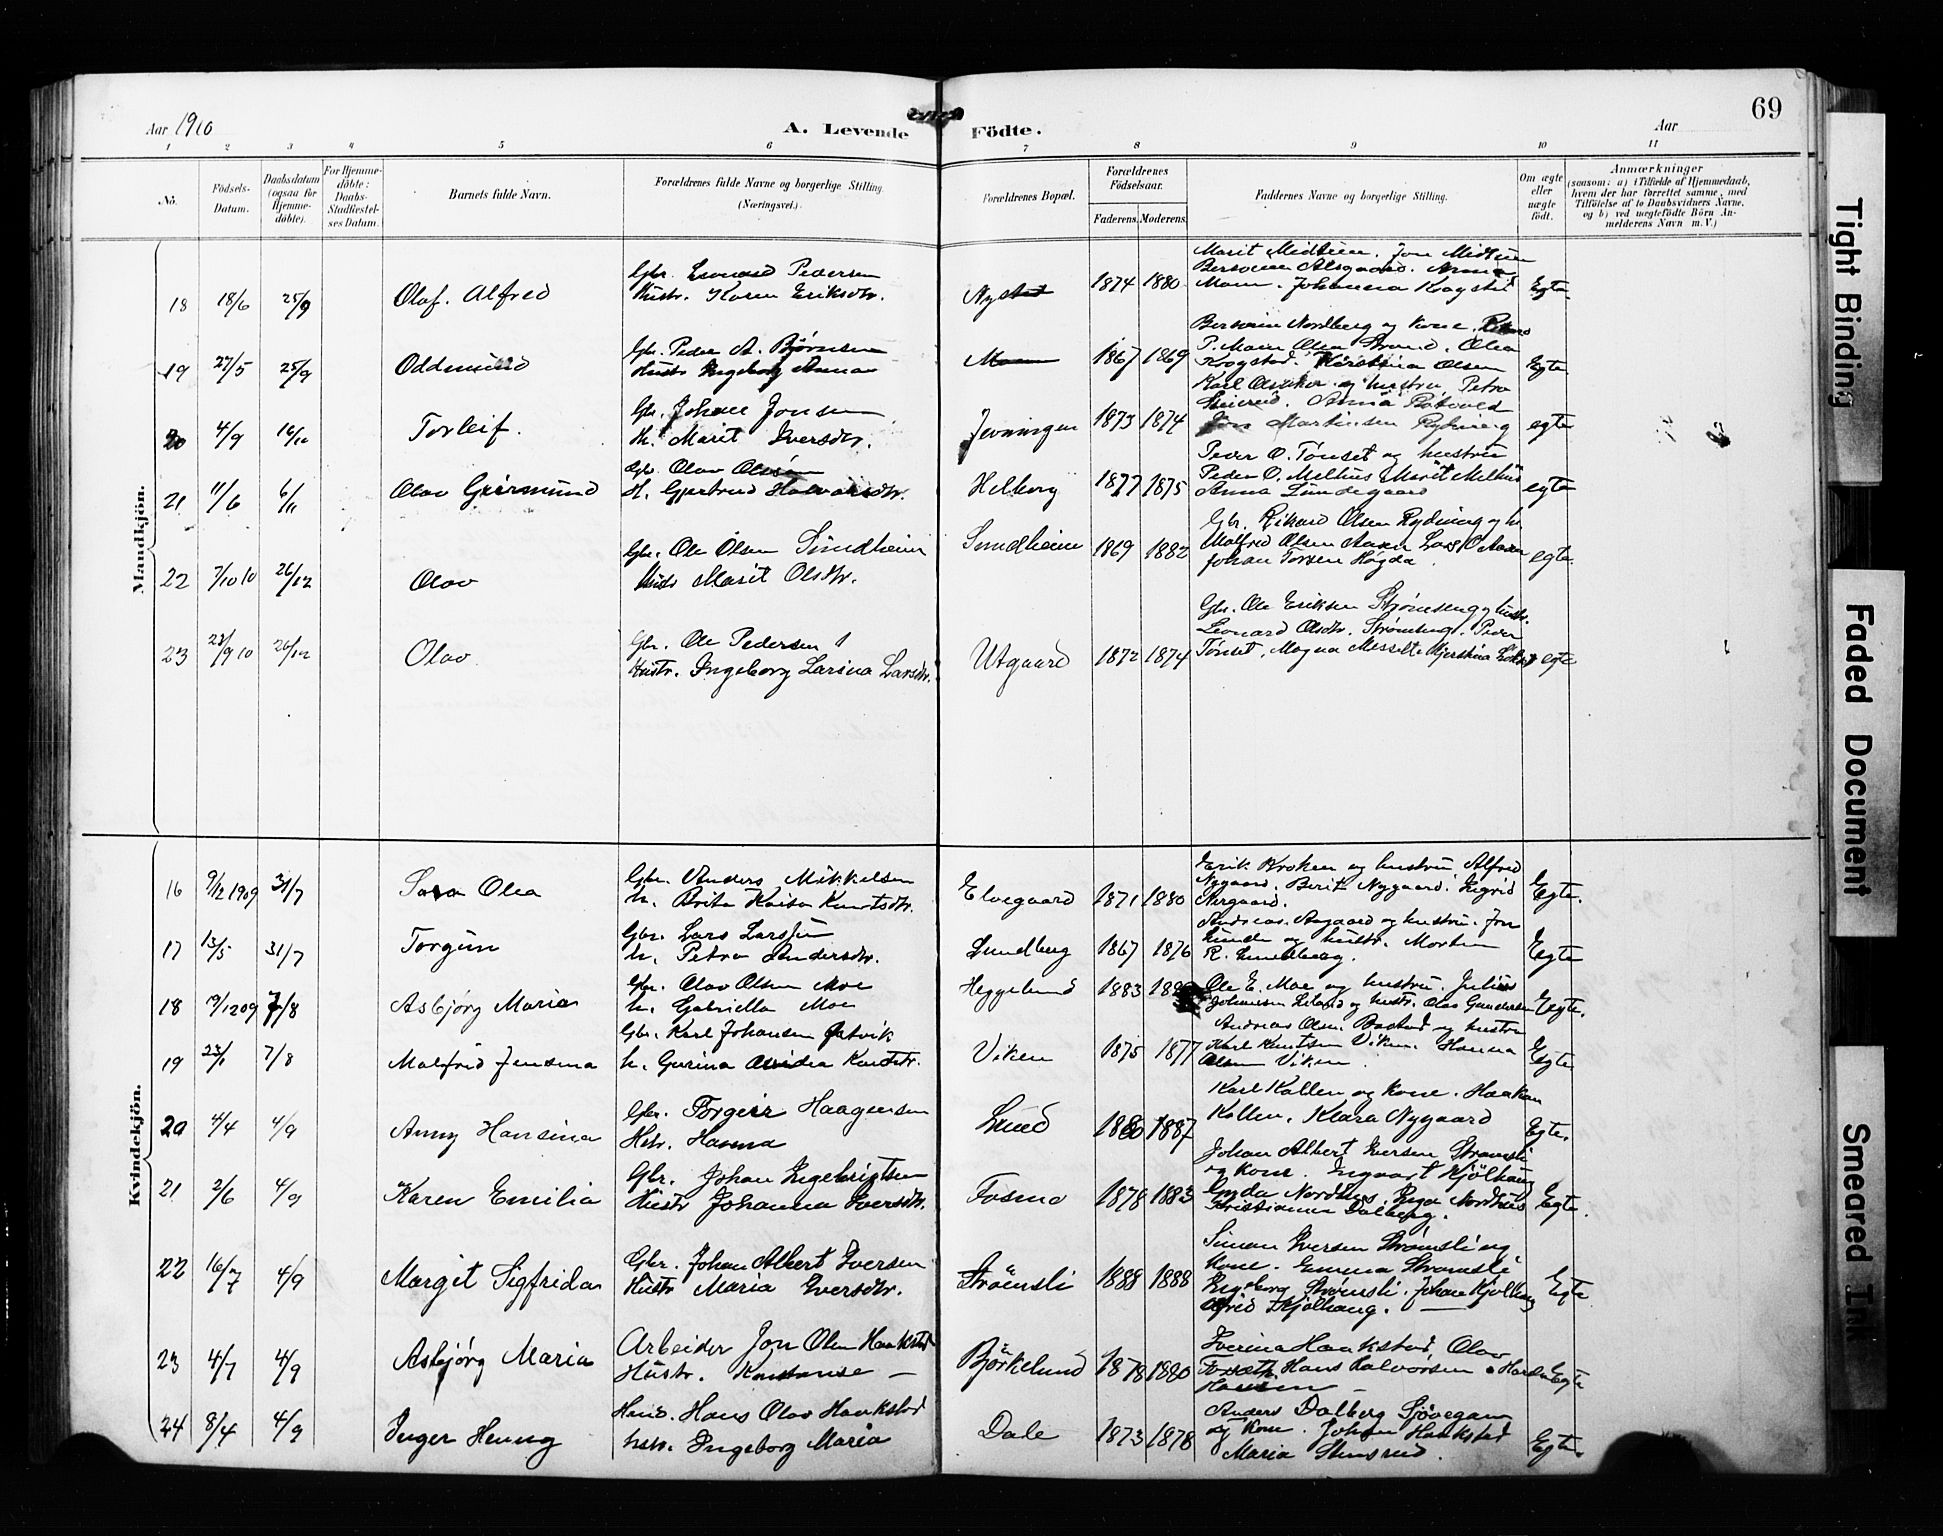 69
Aar 1910
A. Levende Födte.
Aar
1 2 3 4 5 6 7 8 9 10 11
No.
Födsels-Datum.
Daabsdatum (ogsaa for Hjemme-döbte).
For Hjemme-döbte: Daabs-Stadfæstel-ses Datum.
Barnets fulde Navn.
Forældrenes fulde Navne og borgerlige Stilling.
(Næringsvei.)
Forældrenes Bopæl.
Forældrenes Födselsaar.
Faderens. Moderens.
Faddernes Navne og borgerlige Stilling.
Om ægte eller uægte födt.
Anmærkninger
(saasom: a) i Tilfælde af Hjemmedaab,
hvem der har forrettet samme, med
Tilföielse af to Daabsvidners Navne,
og b) ved uægtefödte Börn An-
melderens Navn m. V.)
Mandkjön.
18 18/6 25/9 Olaf. Alfred
Gbr. Leonard Pedersen
Hustr. Karen Eriksdtr.
Nysted 1874 1880
Marit Midtlien. Jon Midtlien
Moen. Johanna Kogstad Egte
19 27/5 25/9 Oddmund
Gbr. Peder A. Björnsen
Hustr Ingeborg Anna
Moen 1867 1869
Bersvein Nordberg og Kone.
P. Moen Olea Strand. Olea
Krogstad. Kirstina Olsen Egte
20 4/9 16/10 Torleif.
Gbr. Johan Jonsen
H. Marit Iversdtr.
Jenningen 1873 1874
Karl Olsaker og hustru, Petra
Jon Martinsen Rydning egte
21 11/6 6/11 Olav Geirmund
Gbr. Olav Olsen
H. Gjertrud Halvorsdtr.
Helberg 1877 1875
Peder O. Tönset og hustru
Peder O. Melhus Marit Melhus
Anna Lundegaard egte
22 7/10 10 26/12 Olav
Gbr. Ole Olsen Sundheim
Hustr Marit Olsdtr.
Sundheim 1869 1882
Gbr. Rikard Olsen Rydning og h.
Malfred Olsen Aasen Lars O Aasen
Johan Torsen Högda. egte
23 23/9 10 26/12 Olav
Gbr. Ole Pedersen
Hustr. Ingeborg Larsina Larsdtr.
Utgaard 1872 1874
Gbr. Ole Eriksen Strömseng og hustr.
Leonard Olsdtr. Strömseng. Peder
Tönset, Magna Messelt Kjerstina egte
Kvindekjön.
16 9/12 1909 31/7 Sara Olea
Gbr. Anders Mikkelsen
h. Brita Kaisa Knutsdtr.
Elvegaard 1871 1880
Erik Broken og hustru Alfred
Nygaard. Berit Nygaard. Sigrid
Nergaard. Egte.
17 13/5 31/7 Torgun
Gbr. Lars Larssen
h. Petra Andersdtr.
Lundberg 1867 1876
Andreas. Aagaard og hustru. Jon
Lunde og hustr. Morten
R. Lundberg. Egte
18 9/12 09 7/8 Asbjörg Maria
Gbr. Olav Olsen Moe
h. Gabriella Moe
Heggelund 1883
Ole E. Moe og hustru. Julius
Johansen Leland og hustr. Olas Gundersen Egte.
19 23/1 7/8 Malfrid Jensina
Gbr. Karl Johansen Gretvik
h. Gurina Knutsdtr.
Viken 1875 1877
Andreas Olsen. Bastad og hustru
Karl Knutsen Viken. Hanna
Olsen Viken Egte
20 4/4 4/9 Anny Hansina
Gbr. Torgeir Haagensen
Hstr. Hanna
Lund 1880 1887
Karl Kollen og Kone. Haakon
Kollen. Klara Nygaard Egte.
21 2/6 4/9 Karen Emilia
Gbr. Johan Ingebrigtsen
Hustr Johanna Iversdtr.
Fosmo 1878 1883
Johan Albert Iversen Strömsli
og Kone. Ingvart Kjölhaug
Gyda Nordhus. Inga Nordhus
Kristianna Dalberg. Egte.
22 16/7 4/9 Margit Sigfrida
Gbr. Johan Albert Iversen
Hustr Maria Iversdtr.
Strömsli 1888 1888
Simon Iversen Strömsli og
Kone. Emma Strömsli
Ingeborg Strömsli. Johan Kjölhaug
Kjölhaug. Egte
23 4/7 4/9 Asbjörg Maria
Arbeider Jon Olsen Haakstad
Hustr. Konstanse
Björkelund 1878 1880
Iverina Haakstad, Olav
Hans Halvorsen
Hansen Egte
24 8/4 4/9 Inger Henny
Hand. Hans Olav Haakstad
hstr. Ingeborg Maria
Dale 1873 1878
Anders Dalberg Sjövegan
og Kone. Johan Haakstad
Maria Stensrud. Egte.
Tight Binding
Faded Document
Smeared Ink